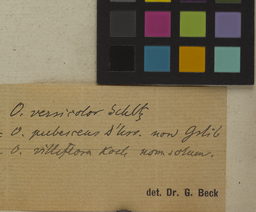 O. versicolor Schltz
= O. pubescens d'Urv. non Gsbb
= O. villiflora Koch, nom solum.
det. Dr. G. Beck